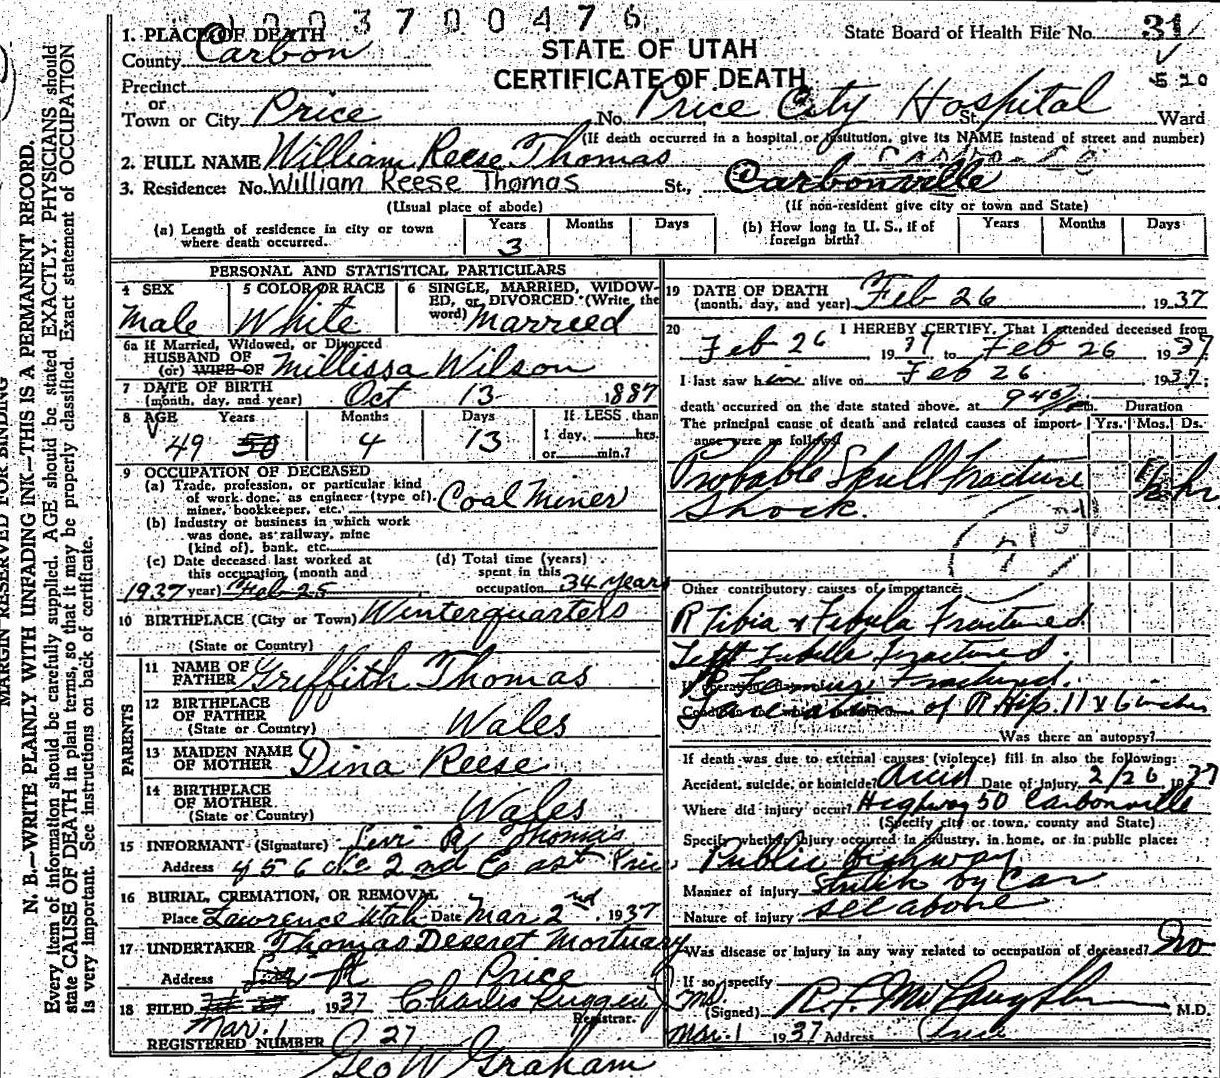 003700476
1. PLACE OF DEATH
County Carbon
STATE OF UTAH
CERTIFICATE OF DEATH
State Board of Health File No. 31
Precinct
or
Town or City Price No. Price City Hospital St. Ward
(If death occurred in a hospital or institution, give its NAME instead of street and number)
2. FULL NAME William Reese Thomas
3. Residence: No. William Reese Thomas St., Carbonville
(Usual place of abode) (If non-resident give city or town and State)
(a) Length of residence in city or town where death occurred. Years 3 Months Days
(b) How long in U. S., if of foreign birth? Years Months Days
PERSONAL AND STATISTICAL PARTICULARS
4 SEX Male
5 COLOR OR RACE White
6 SINGLE, MARRIED, WIDOWED, or DIVORCED (Write the word) Married
6a If Married, Widowed, or Divorced
HUSBAND OF
(or) WIFE OF Millissa Wilson
7 DATE OF BIRTH
(month, day, and year) Oct 13 1887
8 AGE Years Months Days If LESS than
49 50 4 13 1 day, hrs.
or min.?
9 OCCUPATION OF DECEASED
(a) Trade, profession, or particular kind
of work done, as engineer (type of),
miner, bookkeeper, etc. Coal Miner
(b) Industry or business in which work
was done, as railway, mine
(kind of), bank, etc.
(c) Date deceased last worked at
this occupation (month and
year) 1937 Feb 25
(d) Total time (years)
spent in this
occupation 34 years
10 BIRTHPLACE (City or Town) Winterquarters
(State or Country)
PARENTS
11 NAME OF
FATHER Griffith Thomas
12 BIRTHPLACE
OF FATHER
(State or Country) Wales
13 MAIDEN NAME
OF MOTHER Dina Reese
14 BIRTHPLACE
OF MOTHER
(State or Country) Wales
15 INFORMANT (Signature) Levi R Thomas
Address 456 No 2nd East Price
16 BURIAL, CREMATION, OR REMOVAL
Place Lawrence Utah Date Mar 2nd, 1937
17 UNDERTAKER Thomas Deseret Mortuary
Address Price
18 FILED, 1937 Charles Ruggeri
Mar. 1 Registrar.
REGISTERED NUMBER 27
Geo W Graham
19 DATE OF DEATH
(month, day, and year) Feb 26, 1937
20 I HEREBY CERTIFY, That I attended deceased from
Feb 26 1937 to Feb 26 1937
I last saw him alive on Feb 26 1937
death occurred on the date stated above, at 945 m. Duration
The principal cause of death and related causes of importance were as follows: Yrs. Mos. Ds.
Probable Skull Fracture 1/2 hr
Shock.
Other contributory causes of importance:
R Tibia & Febula Fractured
Left Fubella Fractured.
R Femur Fractured.
of R Hip. 11 x 6 inches
Was there an autopsy?
If death was due to external causes (violence) fill in also the following:
Accident, suicide, or homicide? Accid Date of injury 2/26 1937
Where did injury occur? Highway 50 Carbonville
(Specify city or town, county and State)
Specify whether injury occurred in industry, in home, or in public place:
Public highway
Manner of injury Struck by Car
Nature of injury see above
Was disease or injury in any way related to occupation of deceased? No
If so, specify
(Signed) R. F. McLaughlin M.D.
Mar. 1 1937 Address Price
MARGIN RESERVED FOR BINDING
N. B.—WRITE PLAINLY WITH UNFADING INK—THIS IS A PERMANENT RECORD.
Every item of information should be carefully supplied. AGE should be stated EXACTLY. PHYSICIANS should
state CAUSE OF DEATH in plain terms, so that it may be properly classified. Exact statement of OCCUPATION
is very important. See instructions on back of certificate.